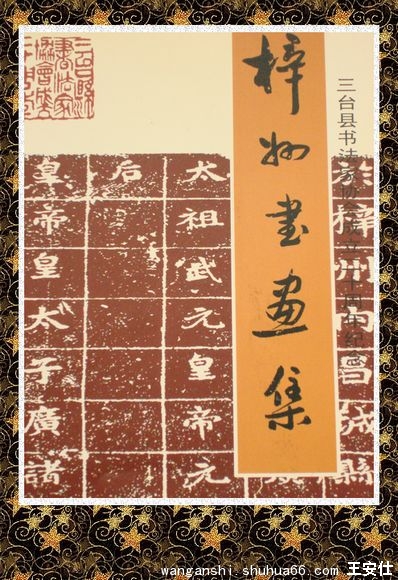 三台县书法家协会成立十周年纪念
梓州書畫集
梓州昌縣
太祖武元皇帝元
后
皇帝皇太子廣諸
wanganshi.shuhua66.com 王安仕